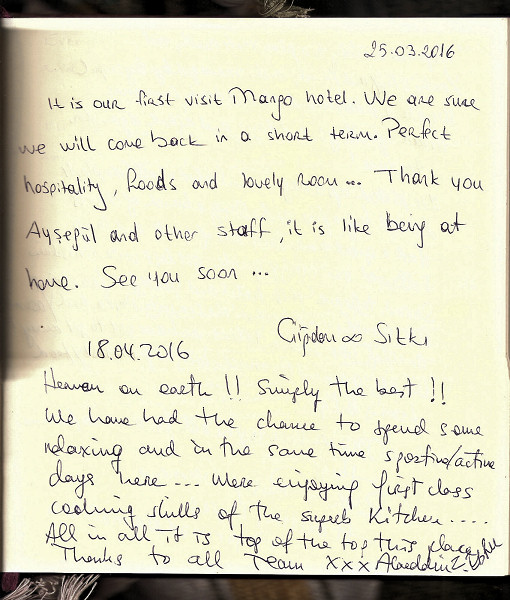 25.03.2016
It is our first visit Mango hotel. We are sure
we will come back in a short term. Perfect
hospitality, foods and lovely room... Thank you
Ayşegül and other staff, it is like being at
home. See you soon ...
∞ Sıtkı
18.04.2016
Heaven on earth!! Simply the best!!
We have had the chance to spend some
relaxing and in the same time sportive/active
days here... Were enjoying first class
cooking skills of the superb kitchen....
All in all it is top of the top this place
Thanks to all Team xxx Alaeddin